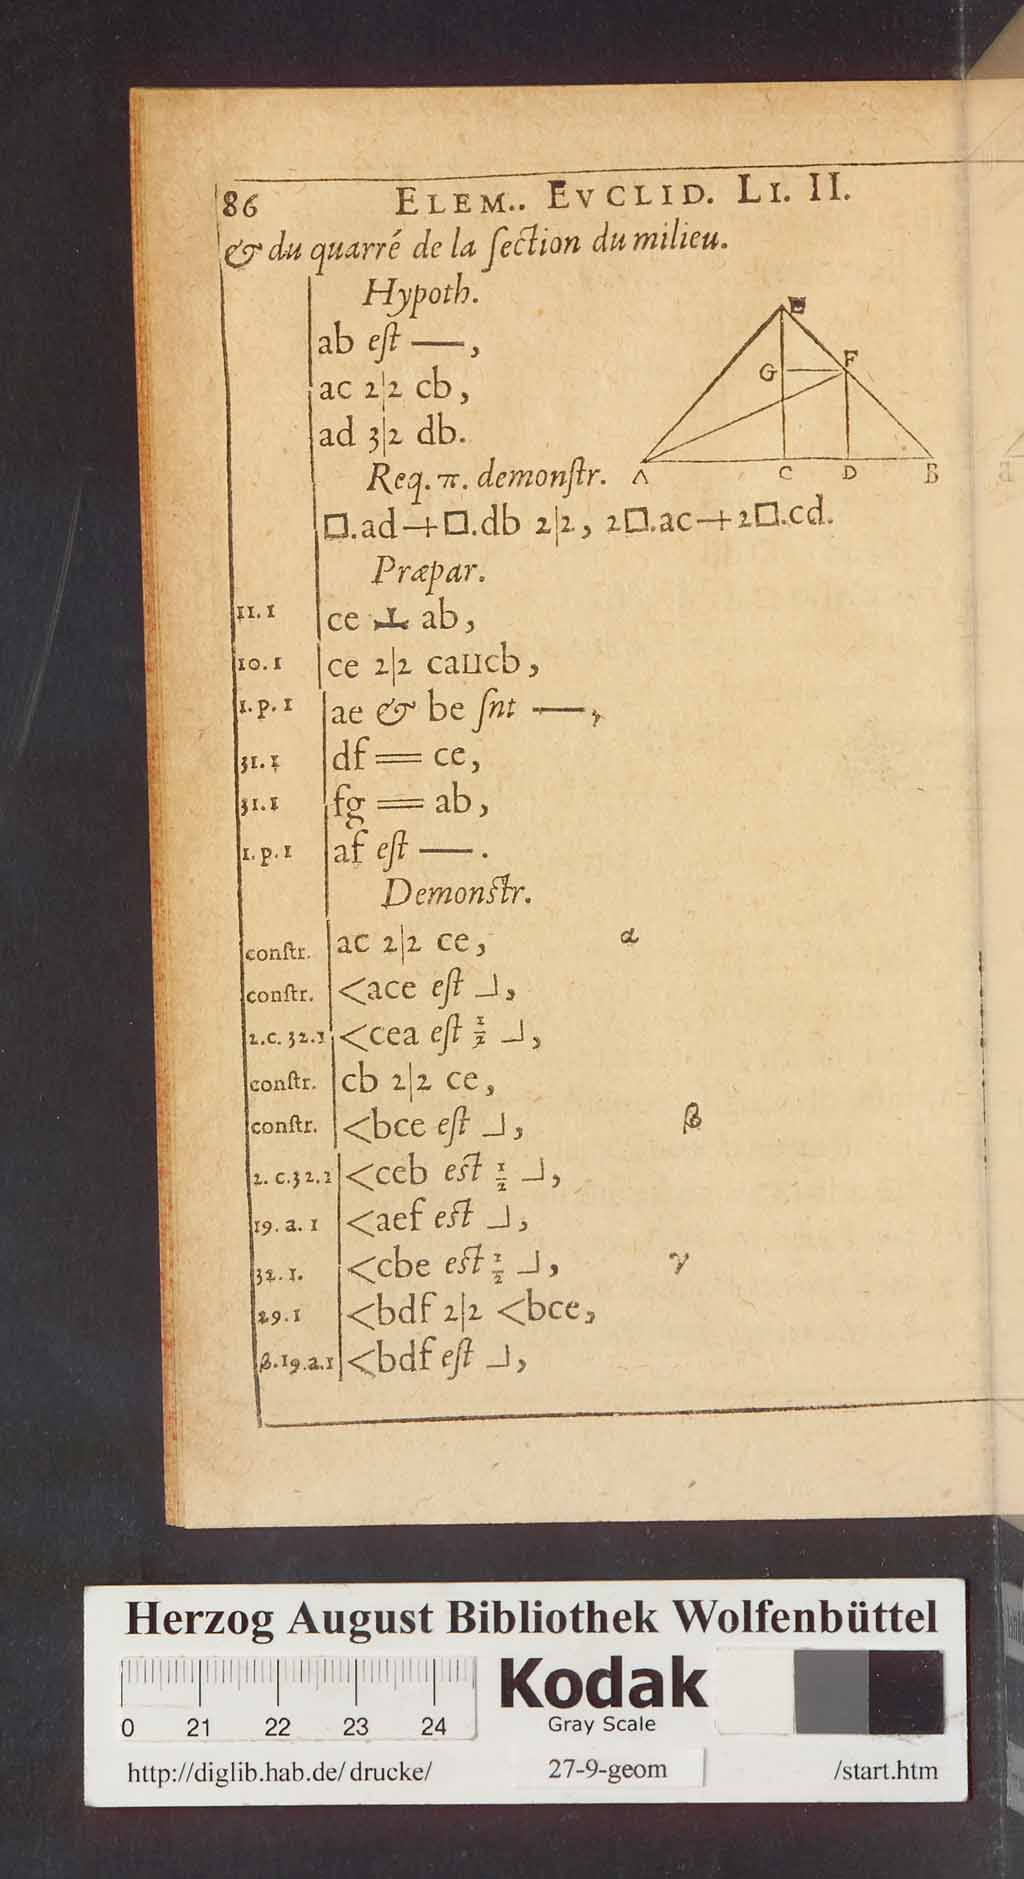 86 ELEM.. EVCLID. LI. II.
& du quarré de la ſection du milieu.
Hypoth.
ab eſt —,
ac 2|2 cb,
ad 3|2 db.
E
G F
A C D B
Req. π. demonſtr.
□.ad+□.db 2|2, 2□.ac+2□.cd.
Præpar.
11. 1 ce ⊥ ab,
10. 1 ce 2|2 caⅡcb,
1. p. 1 ae & be ſnt —,
31. 1 df = ce,
31. 1 fg = ab,
1. p. 1 af eſt —.
Demonſtr.
conſtr. ac 2|2 ce, α
conſtr. <ace eſt ⅃,
2. c. 32. 1 <cea eſt ½ ⅃,
conſtr. cb 2|2 ce,
conſtr. <bce eſt ⅃, β
2. c. 32. 1 <ceb eſt ½ ⅃,
19. a. 1 <aef eſt ⅃,
32. 1. <cbe eſt ½ ⅃, γ
29. 1 <bdf 2|2 <bce,
β. 19. a. 1 <bdf eſt ⅃,
Herzog August Bibliothek Wolfenbüttel
Kodak
Gray Scale
0 21 22 23 24
http://diglib.hab.de/drucke/ 27-9-geom /start.htm